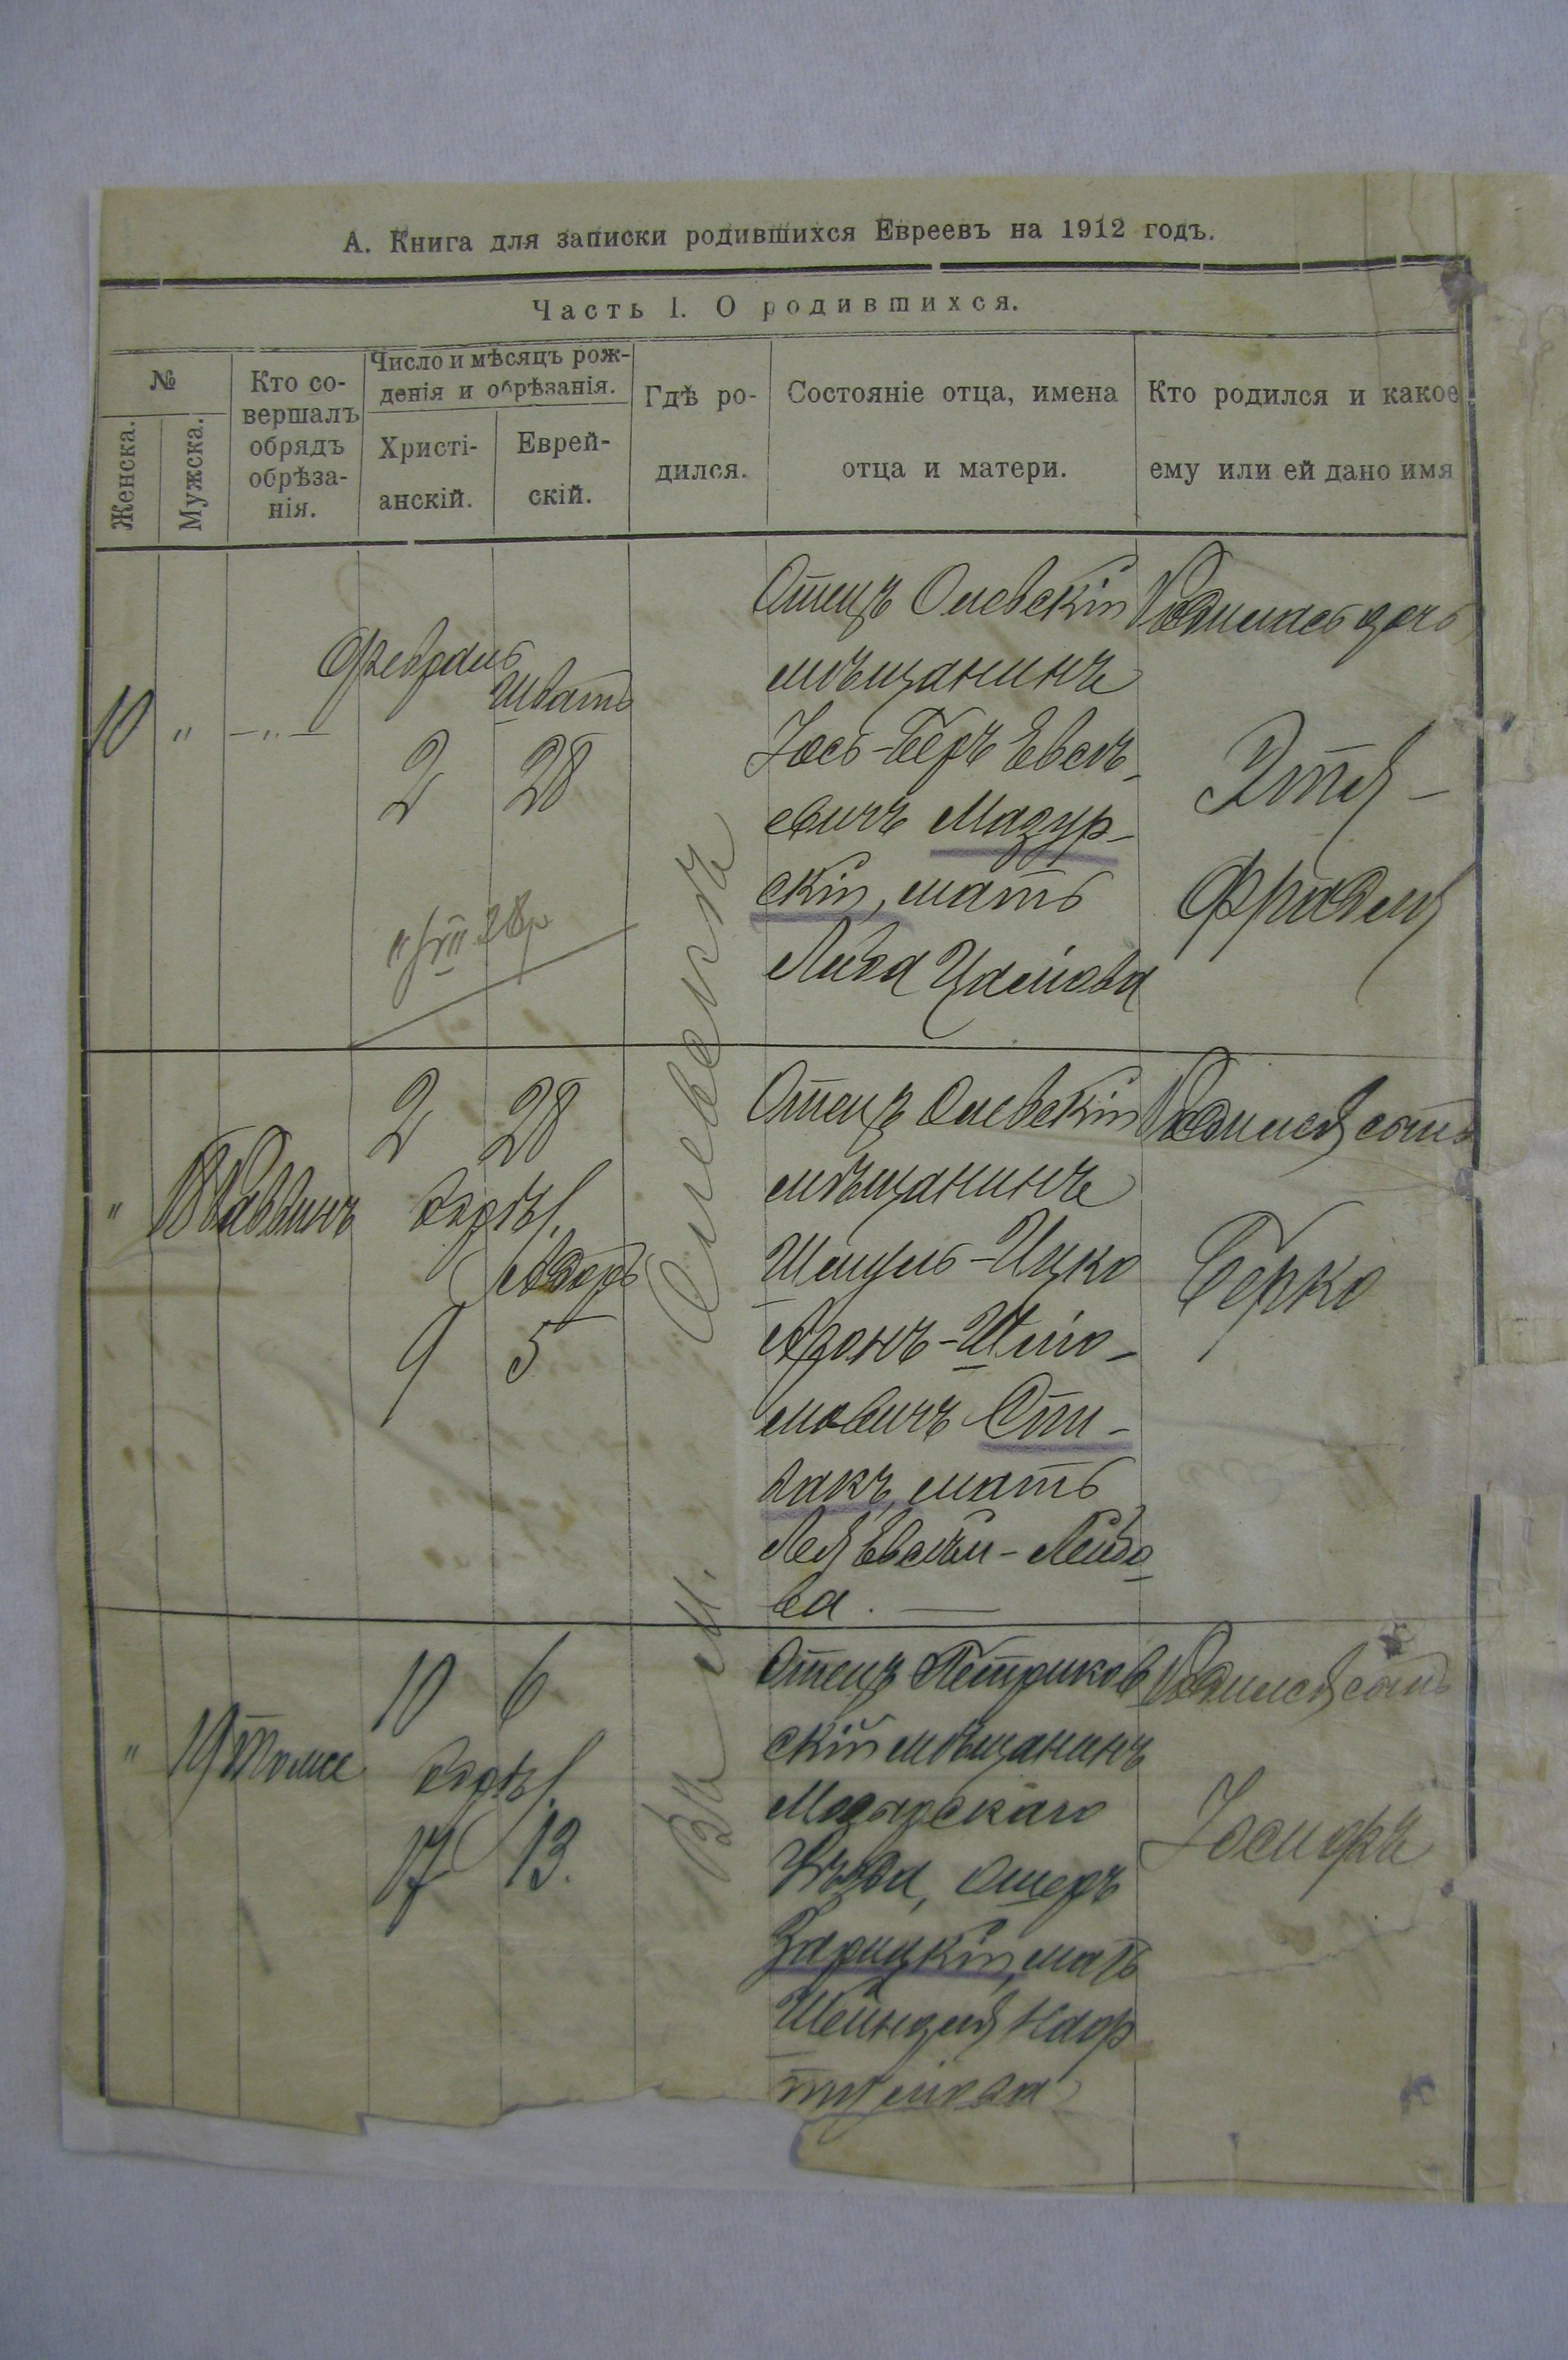 А. Книга для записки родившихся Евреевъ на 1912 годъ.
Часть I. О родившихся.
№
Женска.
Мужска.
Кто со-
вершалъ
обрядъ
обрѣза-
нія.
Число и мѣсяцъ рож-
денія и обрѣзанія.
Христі-
анскій.
Еврей-
скій.
Гдѣ ро-
дился.
Состояніе отца, имена
отца и матери.
Кто родился и какое
ему или ей дано имя
10 " — " —
Февраль
Шватъ
2 28
Въ м. Олевскѣ
Отецъ Олевскій
мѣщанинъ
Іось-Беръ Евель-
евичъ Мазур-
скій, мать
Либа
Родилась дочь
Этя-
Фрадля
" 18 Раввинъ
2 28
обрѣз.
Адаръ
9 5
Отецъ Олевскій
мѣщанинъ
Шмуль-Ицко
Аронъ-Шліо-
мовичъ Спи-
вакъ, мать
Лея
ва.
Родился сынъ
Берко
" 19 Тоже
10 6
обрѣз.
17 13.
Отецъ Петриков
скій мѣщанинъ
Мозырскаго
Уѣзда, Ошеръ
Зарицкій, мать
Шейндля Наф
тулiова
Родился сынъ
Іосифъ